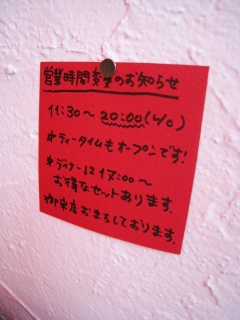 営業時間変更のお知らせ
11:30〜20:00(L/O)
*ティータイムもオープンです!
*ディナーは17:00〜
お得なセットあります。
御来店おまちしております。